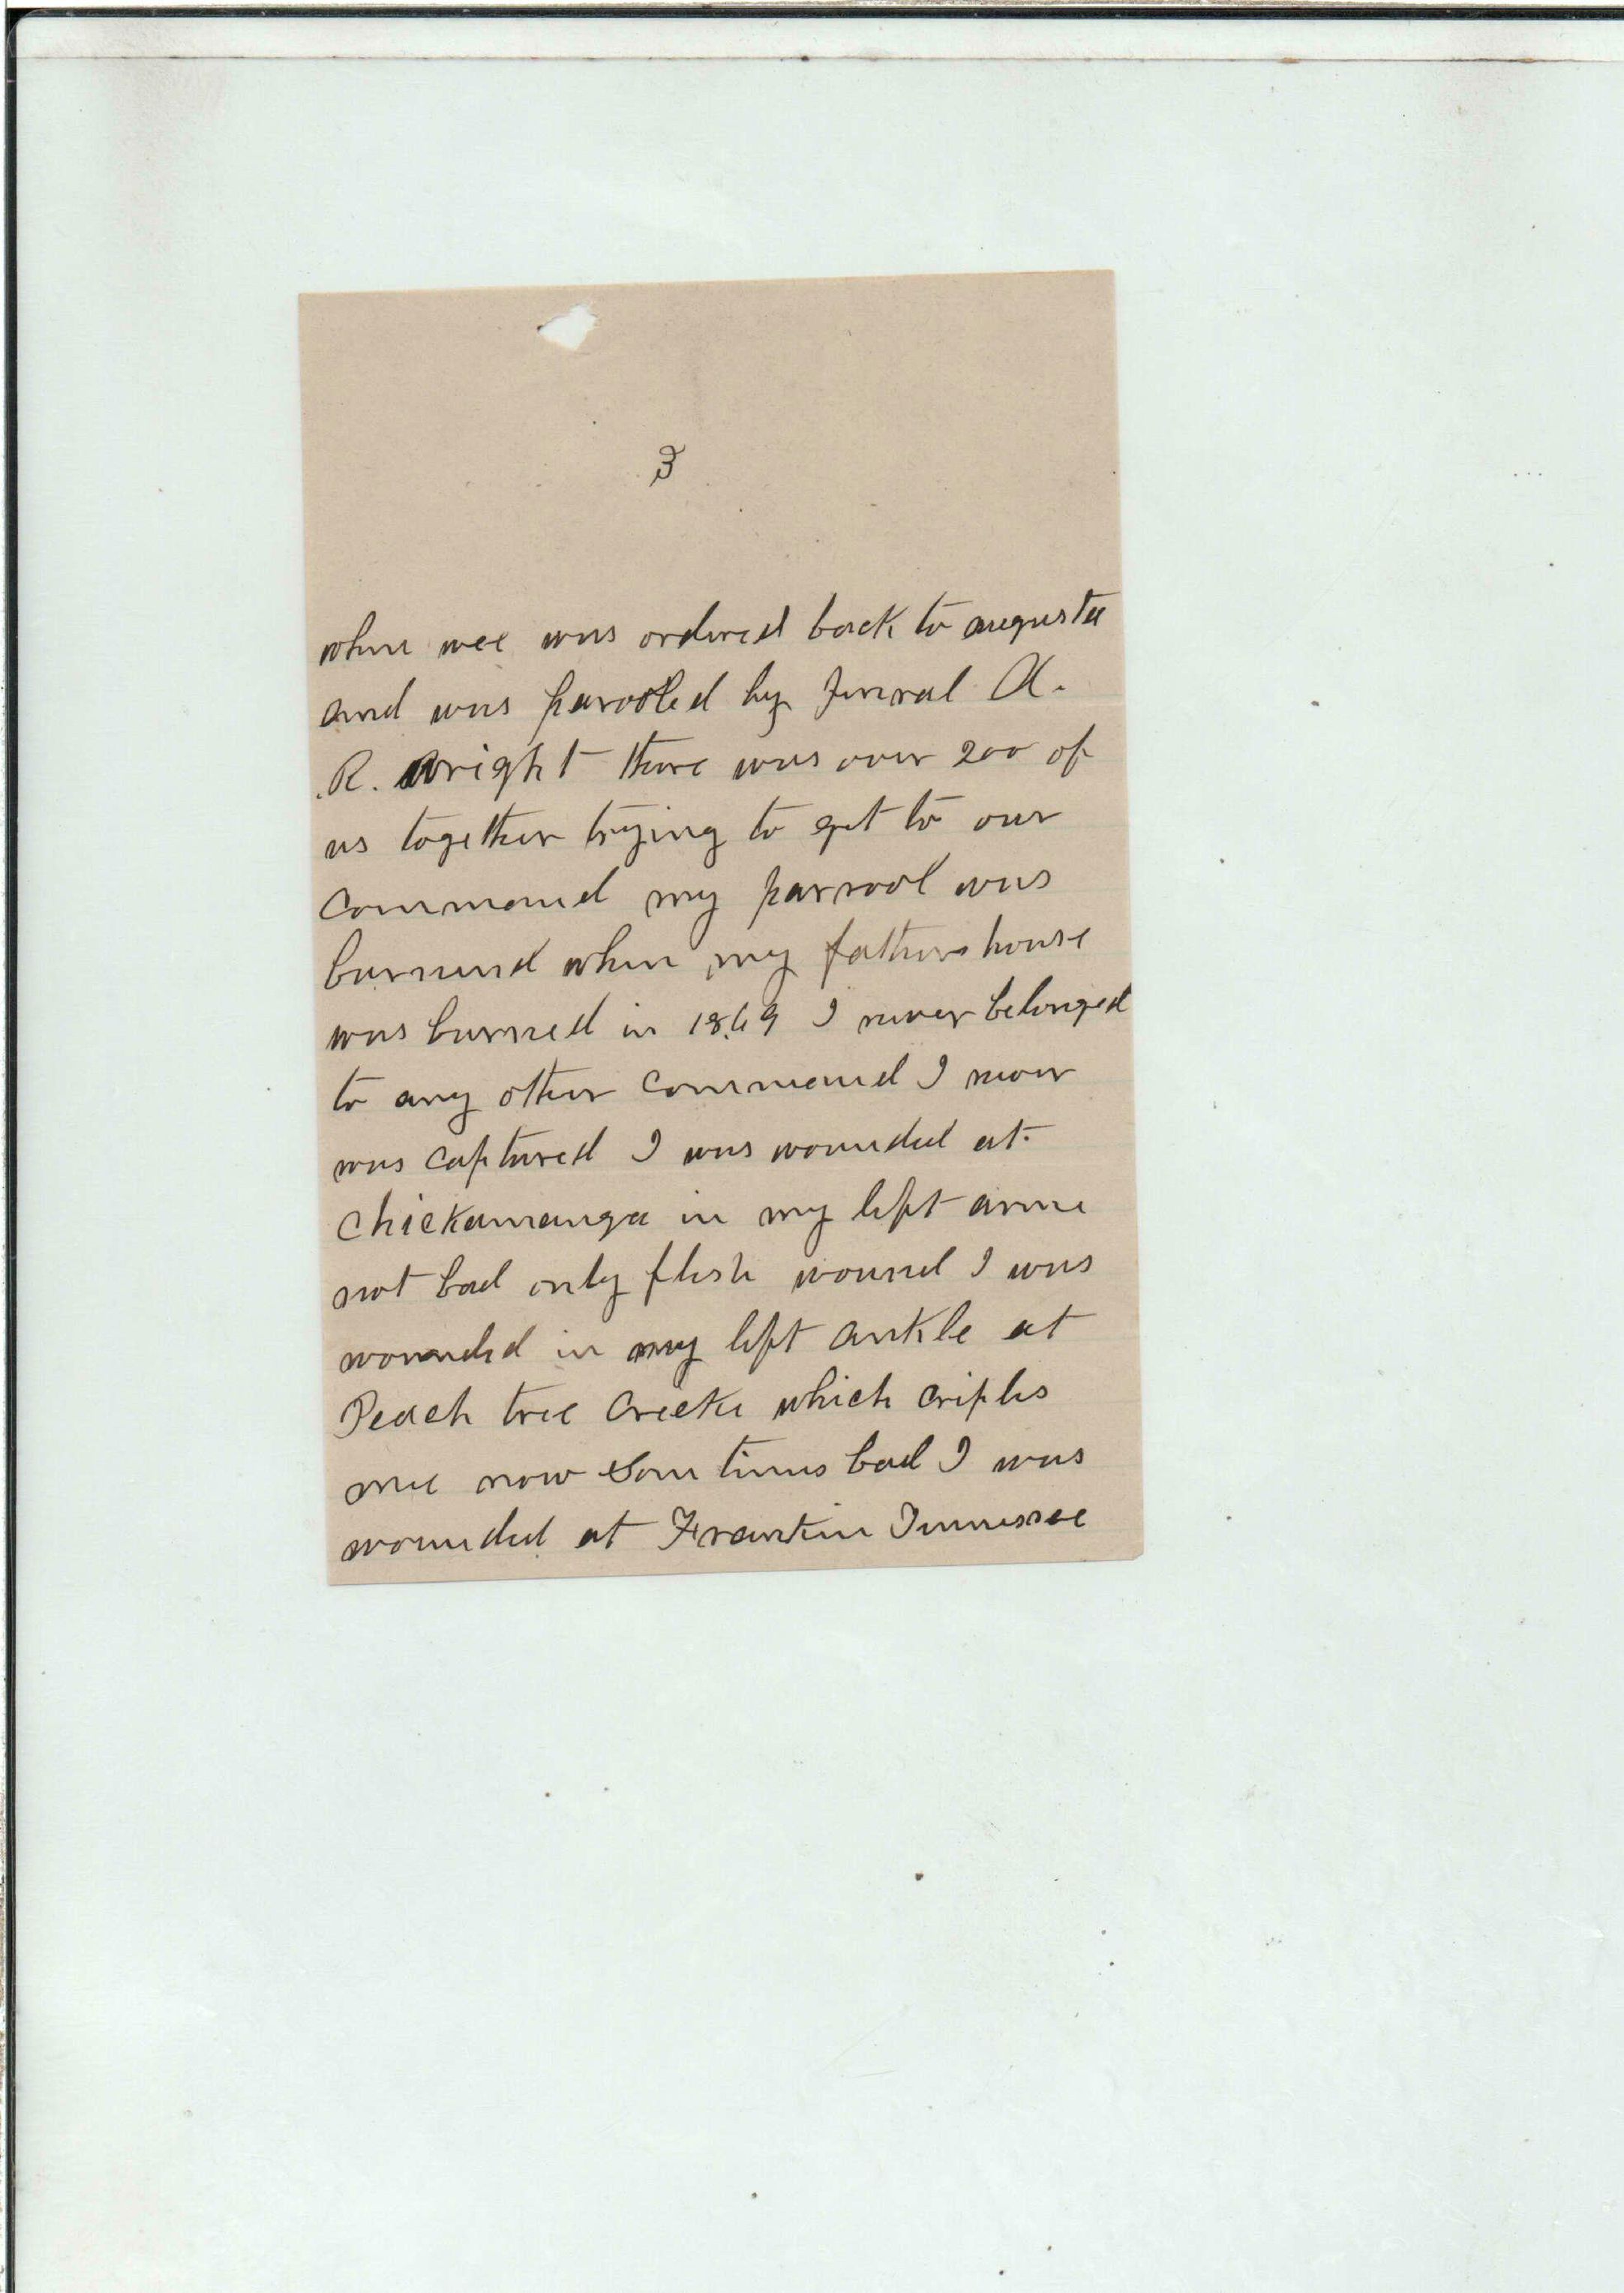 3
when wee was ordered back to augusta
and was parooled by Jineral A.
R. Wright there was over 200 of
us together trying to get to our
Command my parrool was
burnend when my fathers house
was burned in 1869 I never belonged
to any other Command I never
was captured I was wounded at
Chickamauga in my left arme
not bad only flesh wound I was
wounded in my left ankle at
Peach tree Creeke which criples
mee now Som times bad I was
wounded at Franklin Tennessee